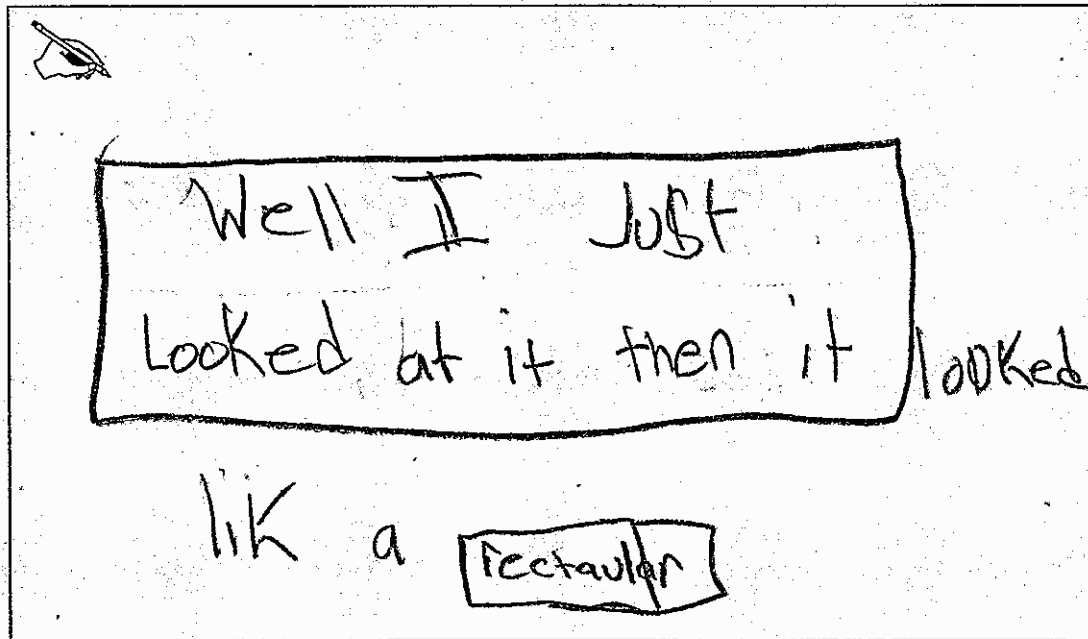 Well I Just
Looked at it then it looked
lik a rectaular